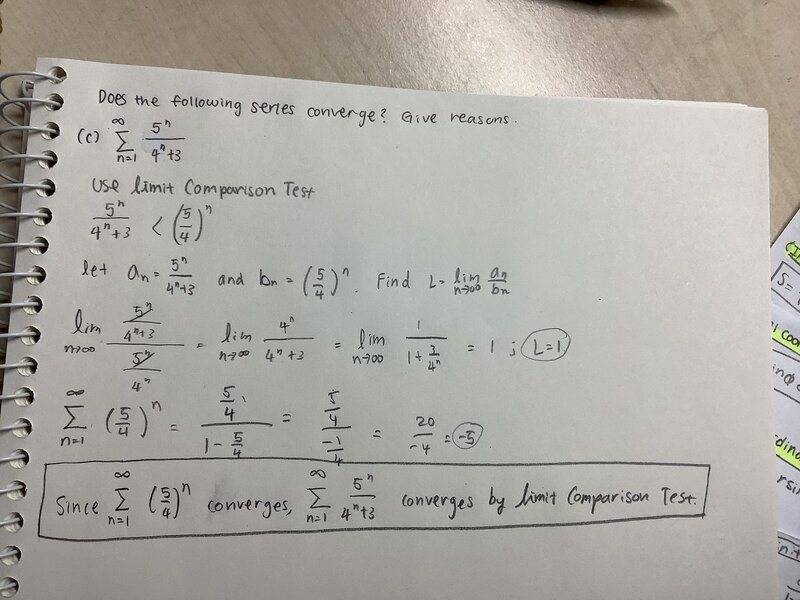 Does the following series converge? Give reasons.
(c) ∞ Σ n=1 5ⁿ/(4ⁿ+3)
Use limit Comparison Test
5ⁿ/(4ⁿ+3) < (5/4)ⁿ
let aₙ = 5ⁿ/(4ⁿ+3) and bₙ = (5/4)ⁿ. Find L = lim n→∞ aₙ/bₙ
lim n→∞ (5ⁿ/(4ⁿ+3))/(5ⁿ/4ⁿ) = lim n→∞ 4ⁿ/(4ⁿ+3) = lim n→∞ 1/(1+3/4ⁿ) = 1 ; L=1
∞ Σ n=1 (5/4)ⁿ = (5/4)/(1-5/4) = (5/4)/(-1/4) = 20/-4 = -5
Since ∞ Σ n=1 (5/4)ⁿ converges, ∞ Σ n=1 5ⁿ/(4ⁿ+3) converges by limit Comparison Test.
S=